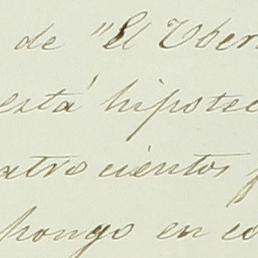 de "El Uber
está hipotec
atrocientos p
pongo en co